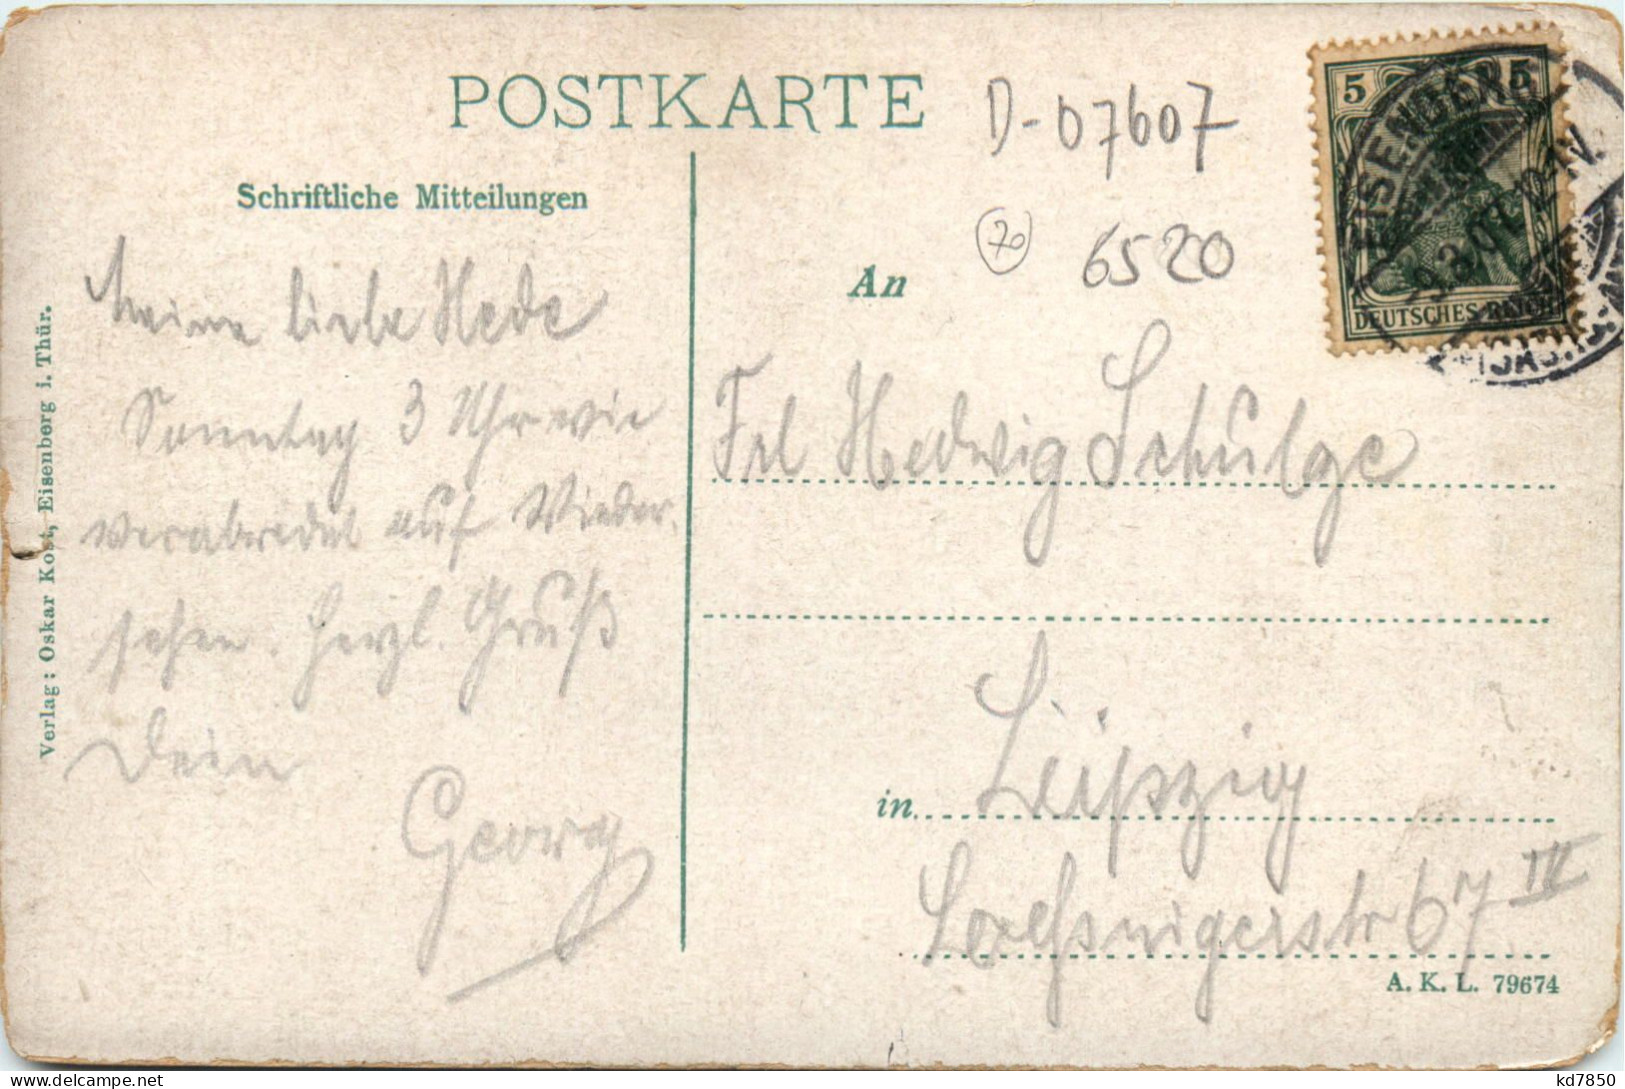 POSTKARTE
D-07607
Schriftliche Mitteilungen
70
6520
An
5 5
DEUTSCHES REICH
EISENBERG
9.3.07. 12-1N.
Meine liebe Hede
Sonntag 3 Uhr wie
verabredet auf Wieder-
sehen. Herzl. Gruß
Dein
Georg
Frl Hedwig Schulze
in Leipzig
67 IV
A. K. L. 79674
Verlag: Oskar Kost, Eisenberg i. Thür.
kd7850